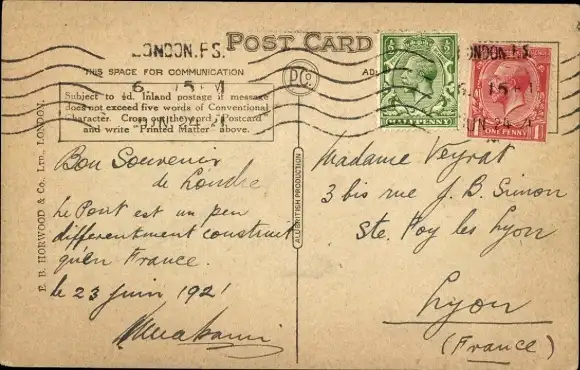 POST CARD
THIS SPACE FOR COMMUNICATION
LONDON.F.S.
6. 15
JUN 24
Subject to ½d. Inland postage if message
does not exceed five words of Conventional
Character. Cross out the word "Postcard"
and write "Printed Matter" above.
Bon Souvenir
de Londre
Le Pont est un peu
differentment construit
qu'en France.
le 23 Juin 1921
E. B. HORWOOD & Co., LTD., LONDON.
ALL BRITISH PRODUCTION
HALFPENNY
LONDON.F.S.
ONE PENNY
Madame Veyrat
3 bis rue J. B. Simon
Ste. Foy les Lyon
Lyon
(France)